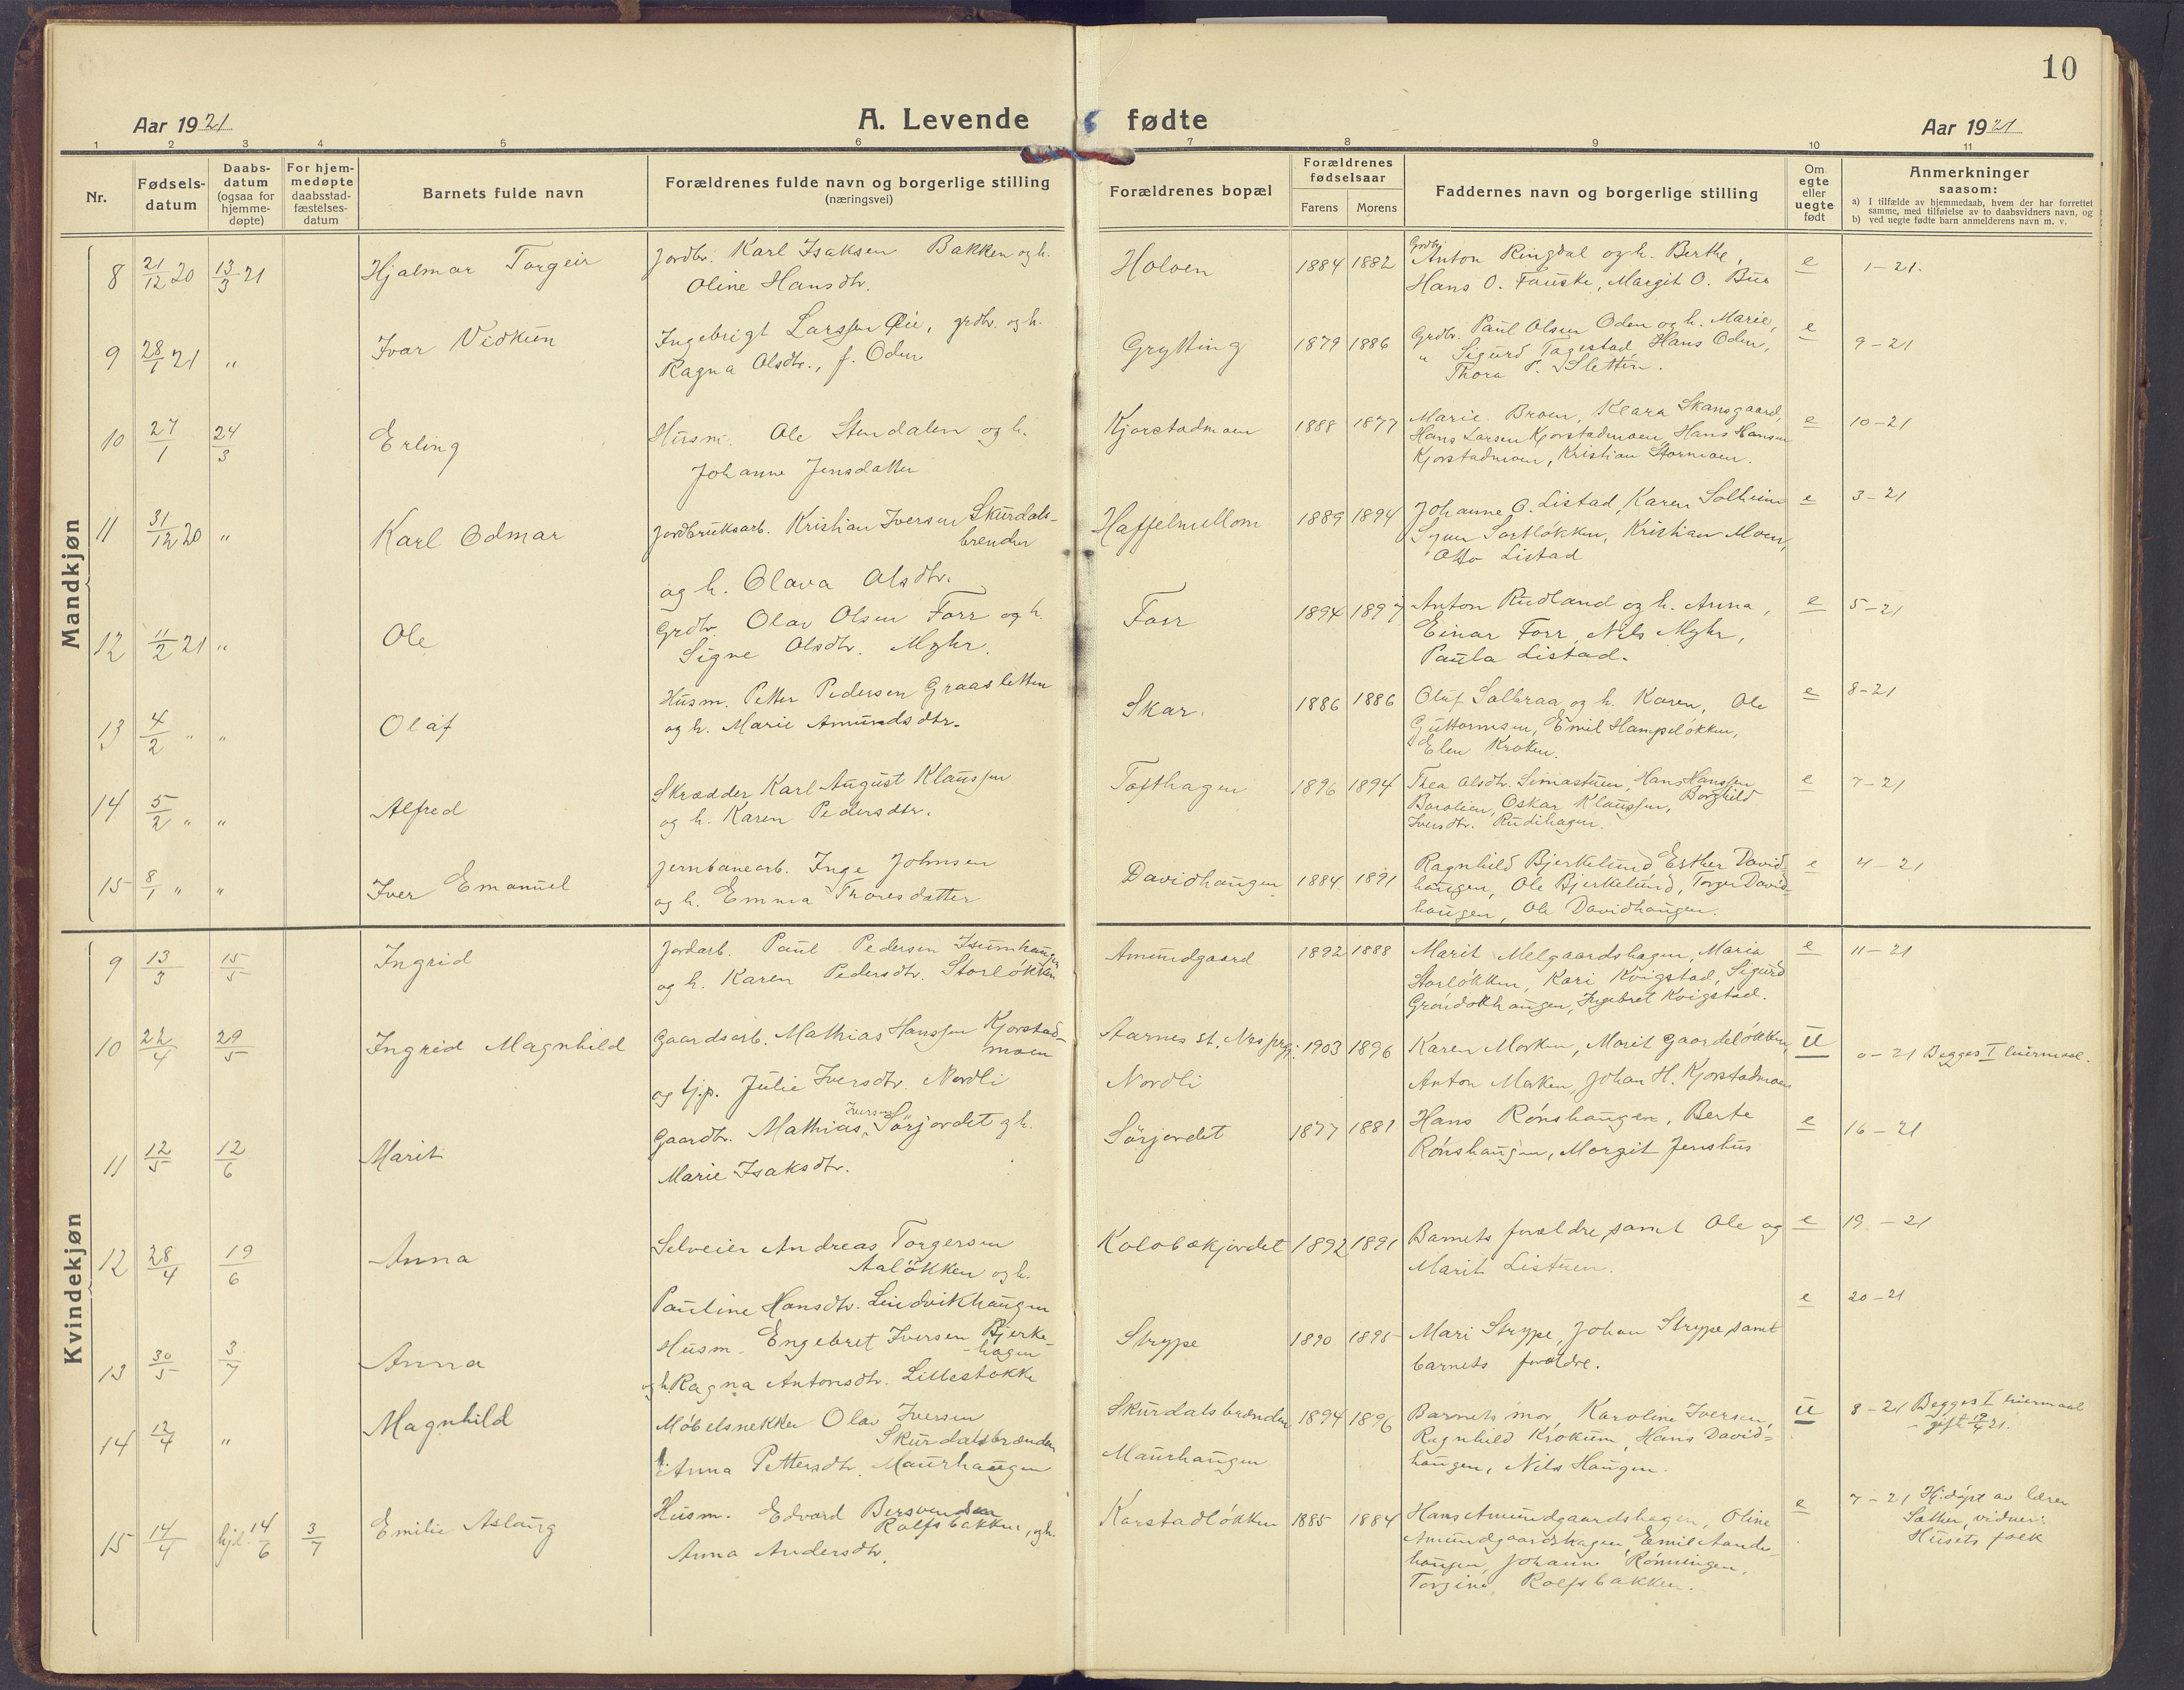 10
Aar 1921
A. Levende fødte
Aar 1921
1 2 3 4 5 6 7 8 9 10 11
Nr.
Fødsels-
datum
Daabs-
datum
(ogsaa for
hjemme-
døpte)
For hjem-
medøpte
daabsstad-
fæstelses-
datum
Barnets fulde navn
Forældrenes fulde navn og borgerlige stilling
(næringsvei)
Forældrenes bopæl
Forældrenes
fødselsaar
Farens Morens
Faddernes navn og borgerlige stilling
Om
egte
eller
uegte
født
Anmerkninger
saasom:
a) I tilfælde av hjemmedaab, hvem der har forrettet
samme, med tilføielse av to daabsvidners navn, og
b) ved uegte fødte barn anmelderens navn m. v.
Mandkjøn
8 21/12 20 13/3 21 Hjalmar Torgeir Jordbr. Karl Isaksen Bakken og h. Holoen 1884 1882 Grdbr. Anton Ringdal og h. Berthe, e 1-21.
Oline Hansdtr. Hans O. Fauske, Margit O. Bue
9 28/1 21 " Ivar Vidkun Ingebrigt Larssen Øie, grdbr. og h. Grytting 1879 1886 Grdbr. Paul Olsen Oden og h. Marie, e 9-21
Ragna Olsdtr., f. Oden " Sigurd Tagestad, Hans Oden,
Thora P. Sletten.
10 27/1 24/3 Erling Husm. Ole Stendalen og h. Kjorstadmoen 1888 1877 Marie Broen, Klara Skansgaard, e 10-21
Johanne Jensdatter Hans Larsen Kjorstadmoen, Hans Hansen
Kjorstadmoen, Kristian Stormoen.
11 31/12 20 " Karl Odmar Jordbruksarb. Kristian Iversen Skurdals-
brenden 1889 1894 Johanne O. Listad, Karen Solheim e 3-21
og h. Olava Olsdtr. Kristian Moen,
Otto Listad
12 11/2 21 " Ole Grdbr. Olav Olsen Forr og h. Forr 1894 1897 Anton Rudland og h. Anna, e 5-21
Signe Olsdtr. Myhr. Einar Forr, Nils Myhr,
Paula Listad.
13 4/2 " " Olaf Husm. Petter Pedersen Graasletten Skar. 1886 1886 Oluf Solbraa og h. Karen, Ole e 8-21
og h. Marie Amundsdtr. Guttormsen, Emil Hampeløkken,
Elen Kroken.
14 5/2 " " Alfred Skrædder Karl August Klaussen Tofthagen 1896 1894 Thea Olsdtr. Hans Hanssen e 7-21
og h. Karen Pedersdtr. Oskar Klaussen, Borghild
Iversdtr. Rudihagen.
15 8/1 " " Iver Emanuel Jernbanearb. Inge Johnsen Davidhaugen 1884 1891 Ragnhild Bjerkelund, Esther David- e 4-21
og h. Emma Thoresdatter haugen, Ole Bjerkelund, Torger David-
haugen, Ole Davidhaugen.
Kvindekjøn
9 13/3 15/5 Ingrid Jordarb. Paul Pedersen Isumhaugen Amundgaard 1892 1888 Marit Melgaardshagen, Maria e 11-21
og h. Karen Pedersdtr. Storløkken Storløkken, Kari Kvigstad, Sigurd
Ingebret Kvigstad.
10 22/4 29/5 Ingrid Magnhild Gaardsarb. Mathias Hanssen Kjorstad-
moen Aarnes st. Nes prgj: 1903 1896 Karen Morken, Marit Gaardeløkken, U 0-21 Begges I leiermaal.
og tj.p. Julie Iversdtr. Nordli Nordli Anton Morken, Johan H. Kjorstadmoen
11 12/5 12/6 Marit Gaardbr. Mathias Iversen Sörjordet og h. Sörjordet 1877 1881 Hans Rónshaugen, Berte e 16-21
Marie Isaksdtr. Rónshaugen, Margit Jenshus
12 28/4 19/6 Anna Selveier Andreas Torgersen Kolobækjordet 1892 1891 Barnets forældre samt Ole og e 19-21
Aaløkken og h. Marit Listuen.
Pauline Hansdtr. Lundvikhaugen
13 30/5 3/7 Anna Husm. Engebret Iversen Bjerke-
hagen Strype 1890 1895 Mari Strype, Johan Strype samt e 20-21
og h. Ragna Antonsdtr. Lillestokke barnets forældre.
14 12/4 " Magnhild Møbelsnekker Olav Iversen Skurdalsbrænden 1894 1896 Barnets mor, Karoline Iversen, U 8-21 Begges I leiermaal
Skurdalsbrænden Ragnhild Krokum, Hans David- - gift 19/4 21.
Anna Pettersdtr. Maurhaugen Maurhaugen haugen, Nils Haugen.
15 14/4 hjd. 14/6 3/7 Emilie Aslaug Husm. Edvard Bersvendsen Karstadløkken 1885 1884 Hans Amundgaardshagen, Oline e 7-21 Hj.døpt av lærer
Rolfsbakken, og h. Amundgaardshagen, Emil Sande- Sæther, vidner:
Anna Andersdtr. haugen, Johanne Rønningen, Husets folk
Torgine Rolfsbakken.